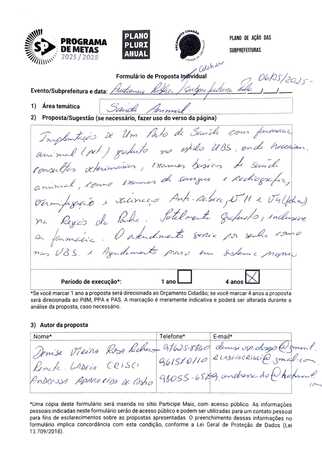 PROGRAMA
DE METAS
2025/2028
PLANO
PLURI
ANUAL
PLANO DE AÇÃO DAS
SUBPREFEITURAS
Formulário de Proposta Individual
Evento/Subprefeitura e data: Audiência Pública Subprefeitura
1) Área temática
Saúde Animal
2) Proposta/Sugestão (se necessário, fazer uso do verso da página)
Implantação de Um Posto de Saúde com farmácia
animal (pet) gratuito no estilo UBS, onde
consultas veterinárias, exames básicos de saúde
animal, como exames de sangue e radiografia,
vermifugação e vacinação Anti-rábica, V 11 e V4 (felina)
na Região da Penha. Totalmente gratuito, inclusive
a farmácia. O atendimento seria por senha como
nas UBS. e Agendamento para um sistema próprio
Período de execução*: 1 ano 4 anos X
*Se você marcar 1 ano a proposta será direcionada ao Orçamento Cidadão; se você marcar 4 anos a proposta
será direcionada ao PdM, PPA e PAS. A marcação é meramente indicativa e poderá ser alterada durante a
análise da proposta, caso necessário.
3) Autor da proposta
Nome* Telefone* E-mail*
Denise Vieira Rosa
Renata
Andressa Aparecida de
*Uma cópia deste formulário será inserida no sítio Participe Mais, com acesso público. As informações
pessoais indicadas neste formulário serão de acesso público e podem ser utilizadas para um contato pessoal
para fins de esclarecimentos sobre as propostas apresentadas. O preenchimento dessas informações no
formulário implica concordância com esta condição, conforme a Lei Geral de Proteção de Dados (Lei
13.709/2018).